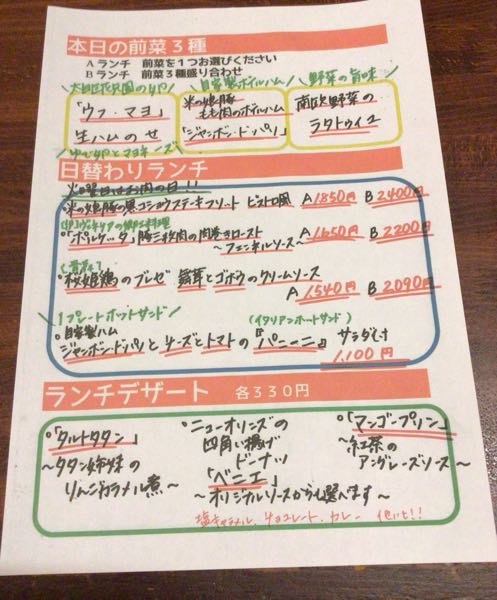 本日の前菜3種
Aランチ 前菜を1つお選びください
Bランチ 前菜3種盛り合わせ
自家製ボイルハム
野菜の旨味
「ウフ・マヨ」
生ハムのせ
ゆで卵とマヨネーズ
米の娘豚
もも肉のボイルハム
「ジャンボン・ド・パリ」
南欧野菜の
ラタトゥイユ
日替わりランチ
火曜日はお肉の日!!
米の娘豚の黒コショウステーキフリット ビストロ風 A 1850円 B 2400円
料理
「ポルケッタ」豚三枚肉の香巻きロースト
~フェンネルソース~
A 1650円 B 2200円
桜姫鶏のブレゼ 茸とゴボウのクリームソース
A 1,540円 B 2,090円
1プレートホットサンド
(イタリアンホットサンド)
自家製ハム
ジャンボン・ド・パリとチーズとトマトの『パニーニ』 サラダ付
1,100円
ランチデザート 各330円
「タルトタタン」
~タタン姉妹の
りんごカラメル煮~
ニューオリンズの
四角い揚げ
ドーナツ
「ベニエ」
~オリジナルソースから選べます~
塩キャラメル、チョコレート、カレー 他いも!!
「マンゴープリン」
~紅茶の
アングレーズソース~